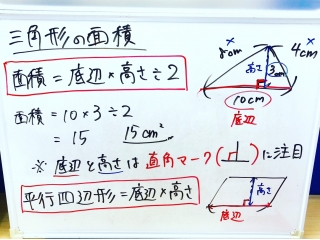 三角形の面積
× 8cm 高さ 3cm × 4cm
面積=底辺×高さ÷2
10cm
底辺
面積=10×3÷2
=15 15cm²
※底辺と高さは直角マーク( )に注目
平行四辺形=底辺×高さ
高さ
底辺